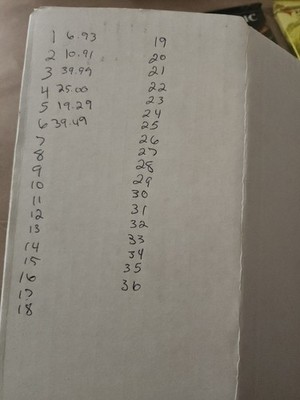 1 6.93
2 10.91
3 39.99
4 25.00
5 19.29
6 39.49
7
8
9
10
11
12
13
14
15
16
17
18
19
20
21
22
23
24
25
26
27
28
29
30
31
32
33
34
35
36